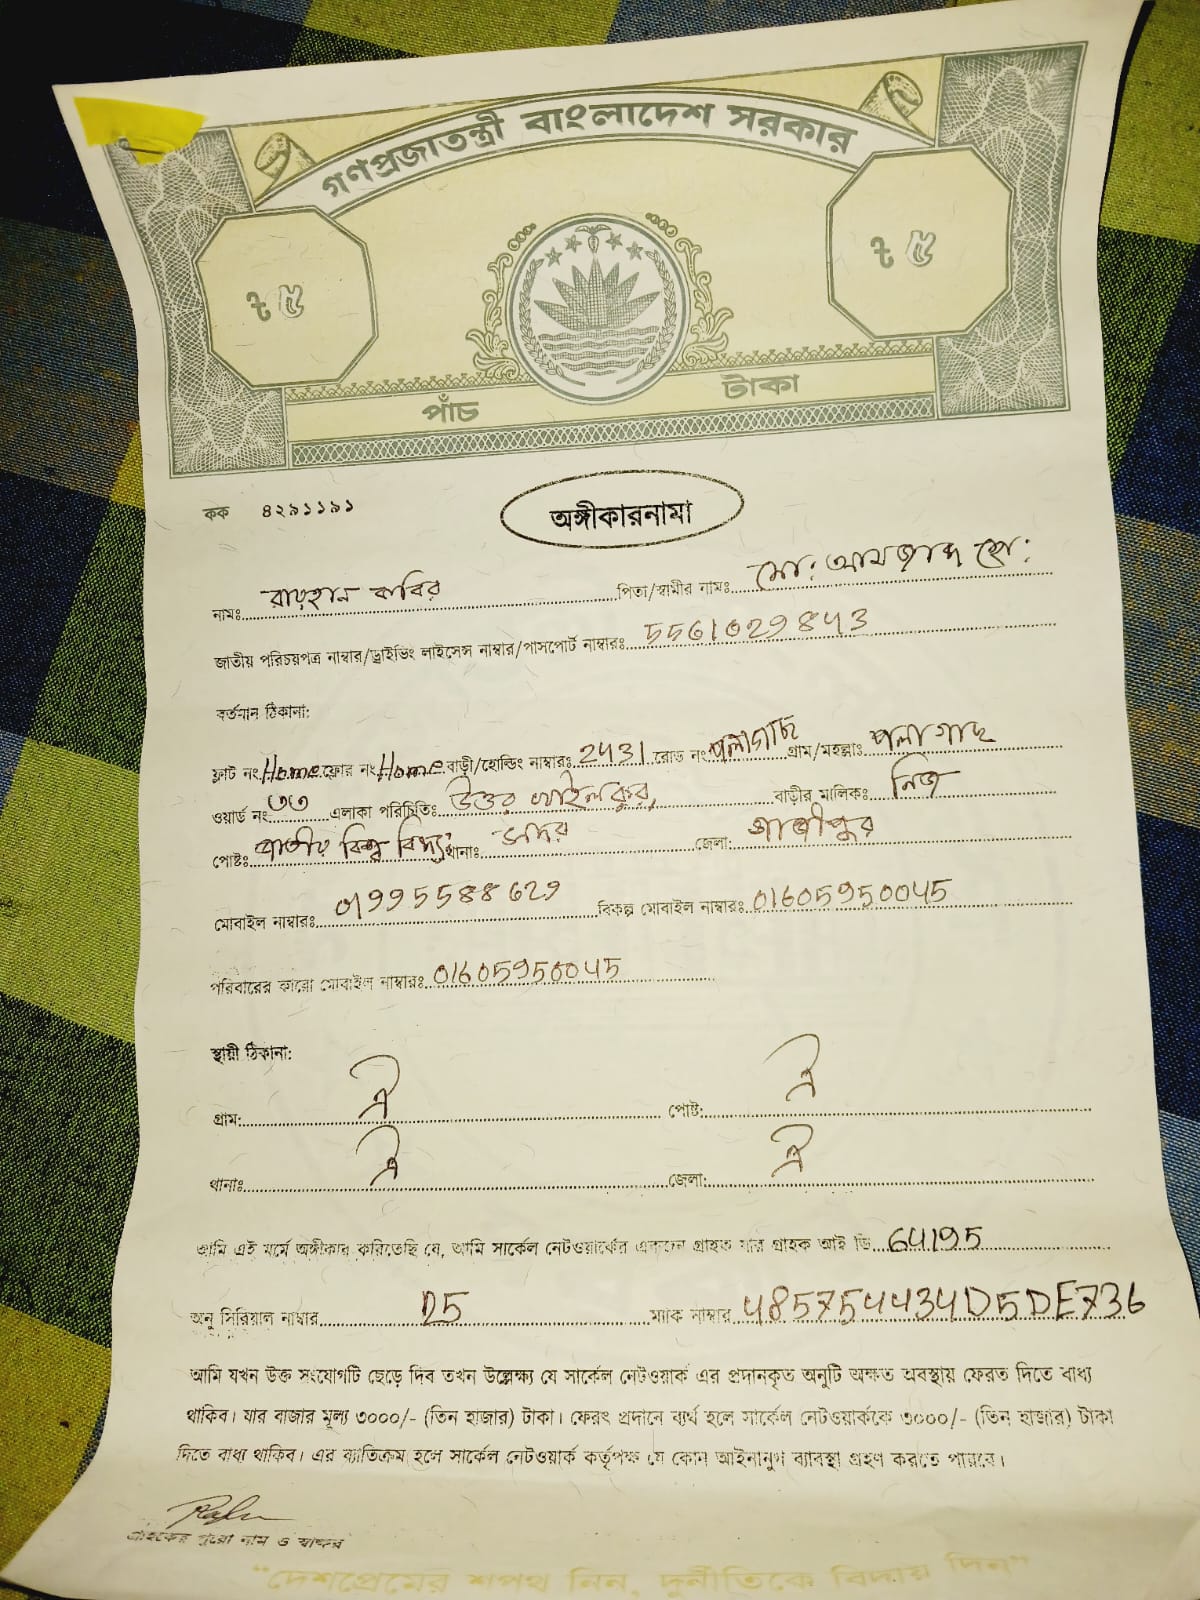 গণপ্রজাতন্ত্রী বাংলাদেশ সরকার
৳ ৫ ৳ ৫
পাঁচ টাকা
কক ৪২৯১১৯১
অঙ্গীকারনামা
নামঃ রায়হান কবির পিতা/স্বামীর নামঃ মো: আমজাদ হো:
জাতীয় পরিচয়পত্র নাম্বার/ড্রাইভিং লাইসেন্স নাম্বার/পাসপোর্ট নাম্বারঃ 5561029843
বর্তমান ঠিকানা:
ফ্লাট নং Home ফ্লোর নং Home বাড়ী/হোল্ডিং নাম্বারঃ 2431 রোড নং পলাগাছ গ্রাম/মহল্লাঃ পলাগাছ
ওয়ার্ড নং ৩৩ এলাকা পরিচিতিঃ উত্তর খাইলকুর, বাড়ীর মালিকঃ নিজ
পোষ্টঃ জাতীয় বিশ্ব বিদ্যা: থানাঃ সদর জেলা: গাজীপুর
মোবাইল নাম্বারঃ 01995588629 বিকল্প মোবাইল নাম্বারঃ 01605950045
পরিবারের কারো মোবাইল নাম্বারঃ 01605950045
স্থায়ী ঠিকানা:
গ্রাম: ঐ পোষ্ট: ঐ
থানাঃ ঐ জেলা: ঐ
আমি এই মর্মে অঙ্গীকার করিতেছি যে, আমি সার্কেল নেটওয়ার্কের একজন গ্রাহক যার গ্রাহক আই ডি 64195
অনু সিরিয়াল নাম্বার D5 ম্যাক নাম্বার 485754434D5DE736
আমি যখন উক্ত সংযোগটি ছেড়ে দিব তখন উল্লেক্ষ্য যে সার্কেল নেটওয়ার্ক এর প্রদানকৃত অনুটি অক্ষত অবস্থায় ফেরত দিতে বাধ্য
থাকিব। যার বাজার মূল্য ৩০০০/- (তিন হাজার) টাকা। ফেরৎ প্রদানে ব্যর্থ হলে সার্কেল নেটওয়ার্ককে ৩০০০/- (তিন হাজার) টাকা
দিতে বাধ্য থাকিব। এর ব্যাতিক্রম হলে সার্কেল নেটওয়ার্ক কর্তৃপক্ষ যে কোন আইনানুগ ব্যাবস্থা গ্রহণ করতে পারবে।
গ্রাহকের পুরো নাম ও স্বাক্ষর
"দেশপ্রেমের শপথ নিন, দুর্নীতিকে বিদায় দিন"